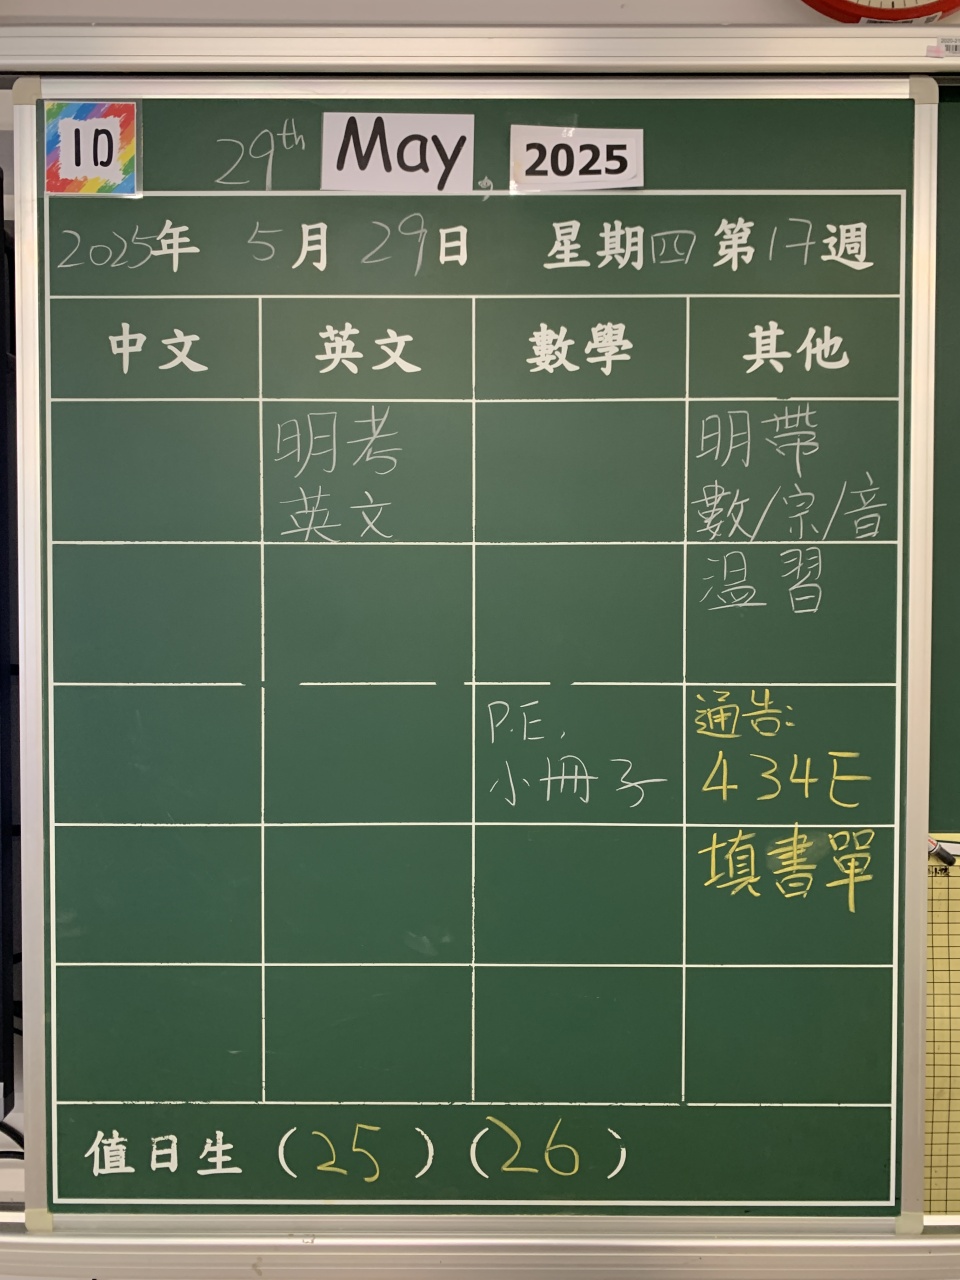 1D
29th May, 2025
2025年 5月 29日 星期四 第17週
中文 英文 數學 其他
明考
英文
明帶
數/宗/音
温習
P.E.
小冊子
通告:
434E
填書單
值日生 (25) (26)